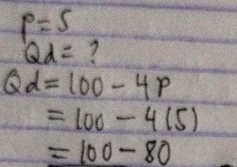 P = 5
Qd = ?
Qd = 100 - 4P
= 100 - 4(5)
= 100 - 80